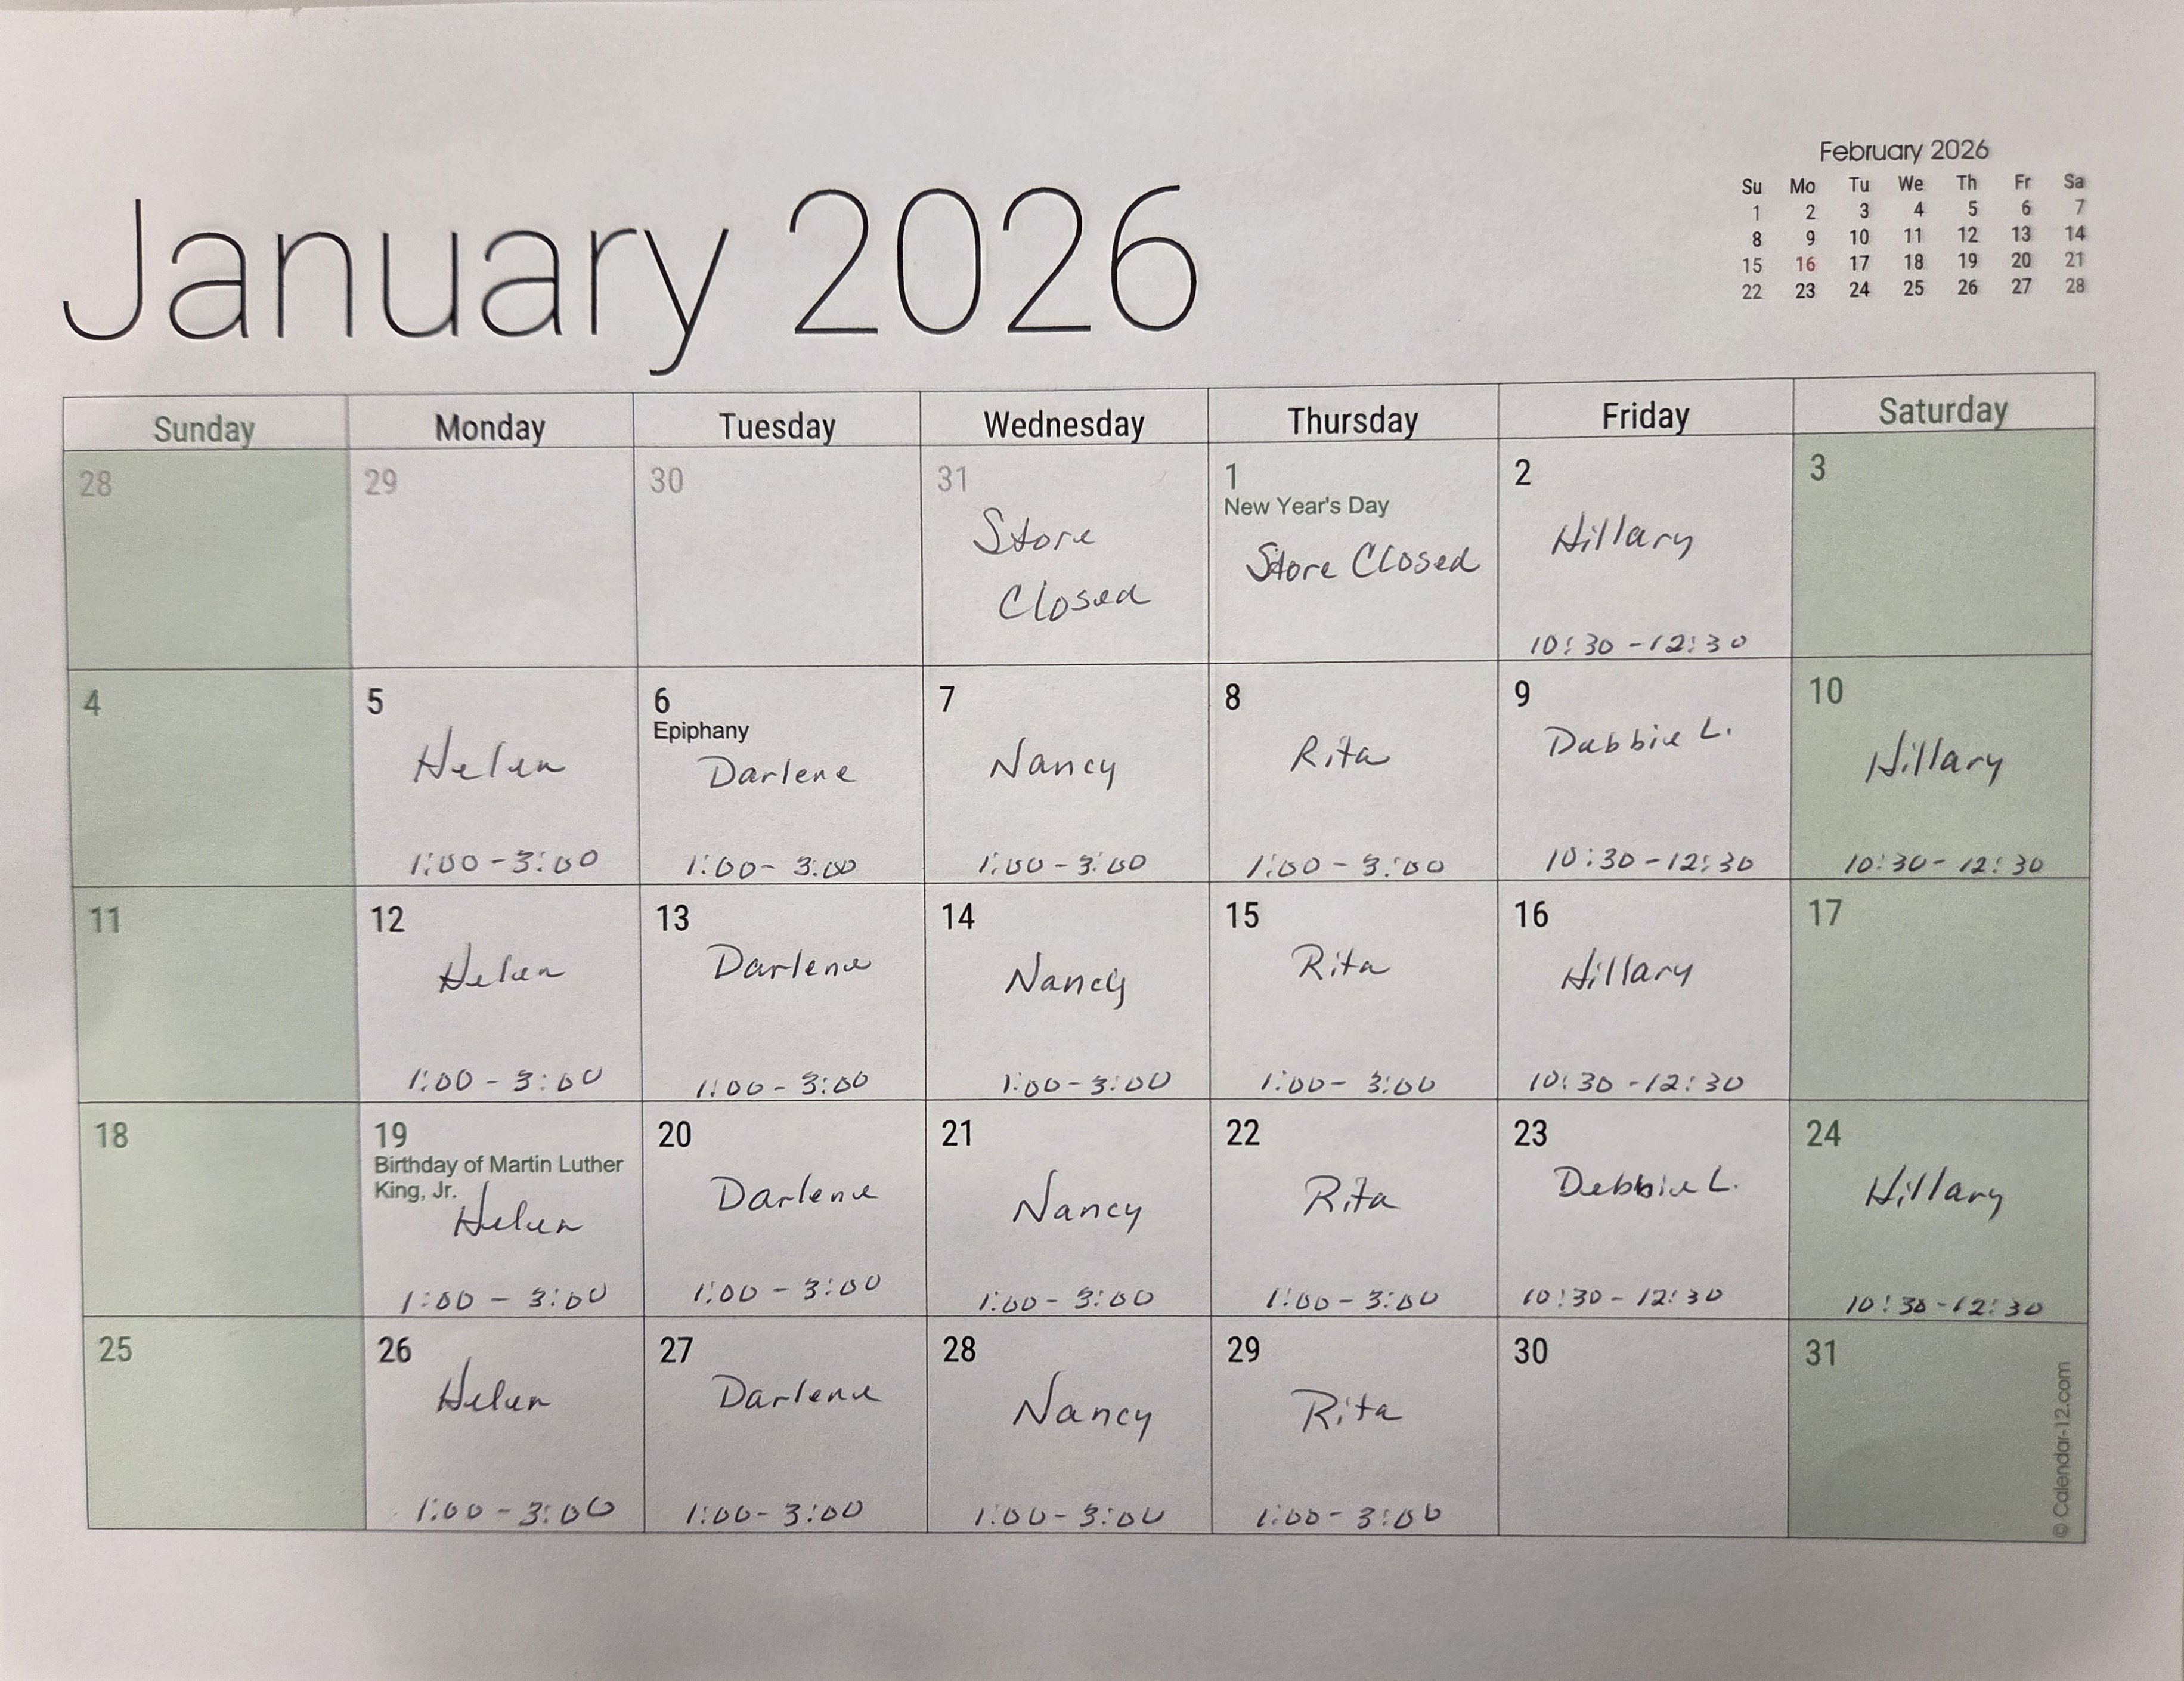 January 2026
February 2026
Su Mo Tu We Th Fr Sa
1 2 3 4 5 6 7
8 9 10 11 12 13 14
15 16 17 18 19 20 21
22 23 24 25 26 27 28
Sunday Monday Tuesday Wednesday Thursday Friday Saturday
28
29
30
31
Store
Closed
1
New Year's Day
Store Closed
2
Hillary
10:30 - 12:30
3
4
5
Helen
1:00 - 3:00
6
Epiphany
Darlene
1:00 - 3:00
7
Nancy
1:00 - 3:00
8
Rita
1:00 - 3:00
9
Debbie L.
10:30 - 12:30
10
Hillary
10:30 - 12:30
11
12
Helen
1:00 - 3:00
13
Darlene
1:00 - 3:00
14
Nancy
1:00 - 3:00
15
Rita
1:00 - 3:00
16
Hillary
10:30 - 12:30
17
18
19
Birthday of Martin Luther
King, Jr.
Helen
1:00 - 3:00
20
Darlene
1:00 - 3:00
21
Nancy
1:00 - 3:00
22
Rita
1:00 - 3:00
23
Debbie L.
10:30 - 12:30
24
Hillary
10:30 - 12:30
25
26
Helen
1:00 - 3:00
27
Darlene
1:00 - 3:00
28
Nancy
1:00 - 3:00
29
Rita
1:00 - 3:00
30
31
© Calendar-12.com